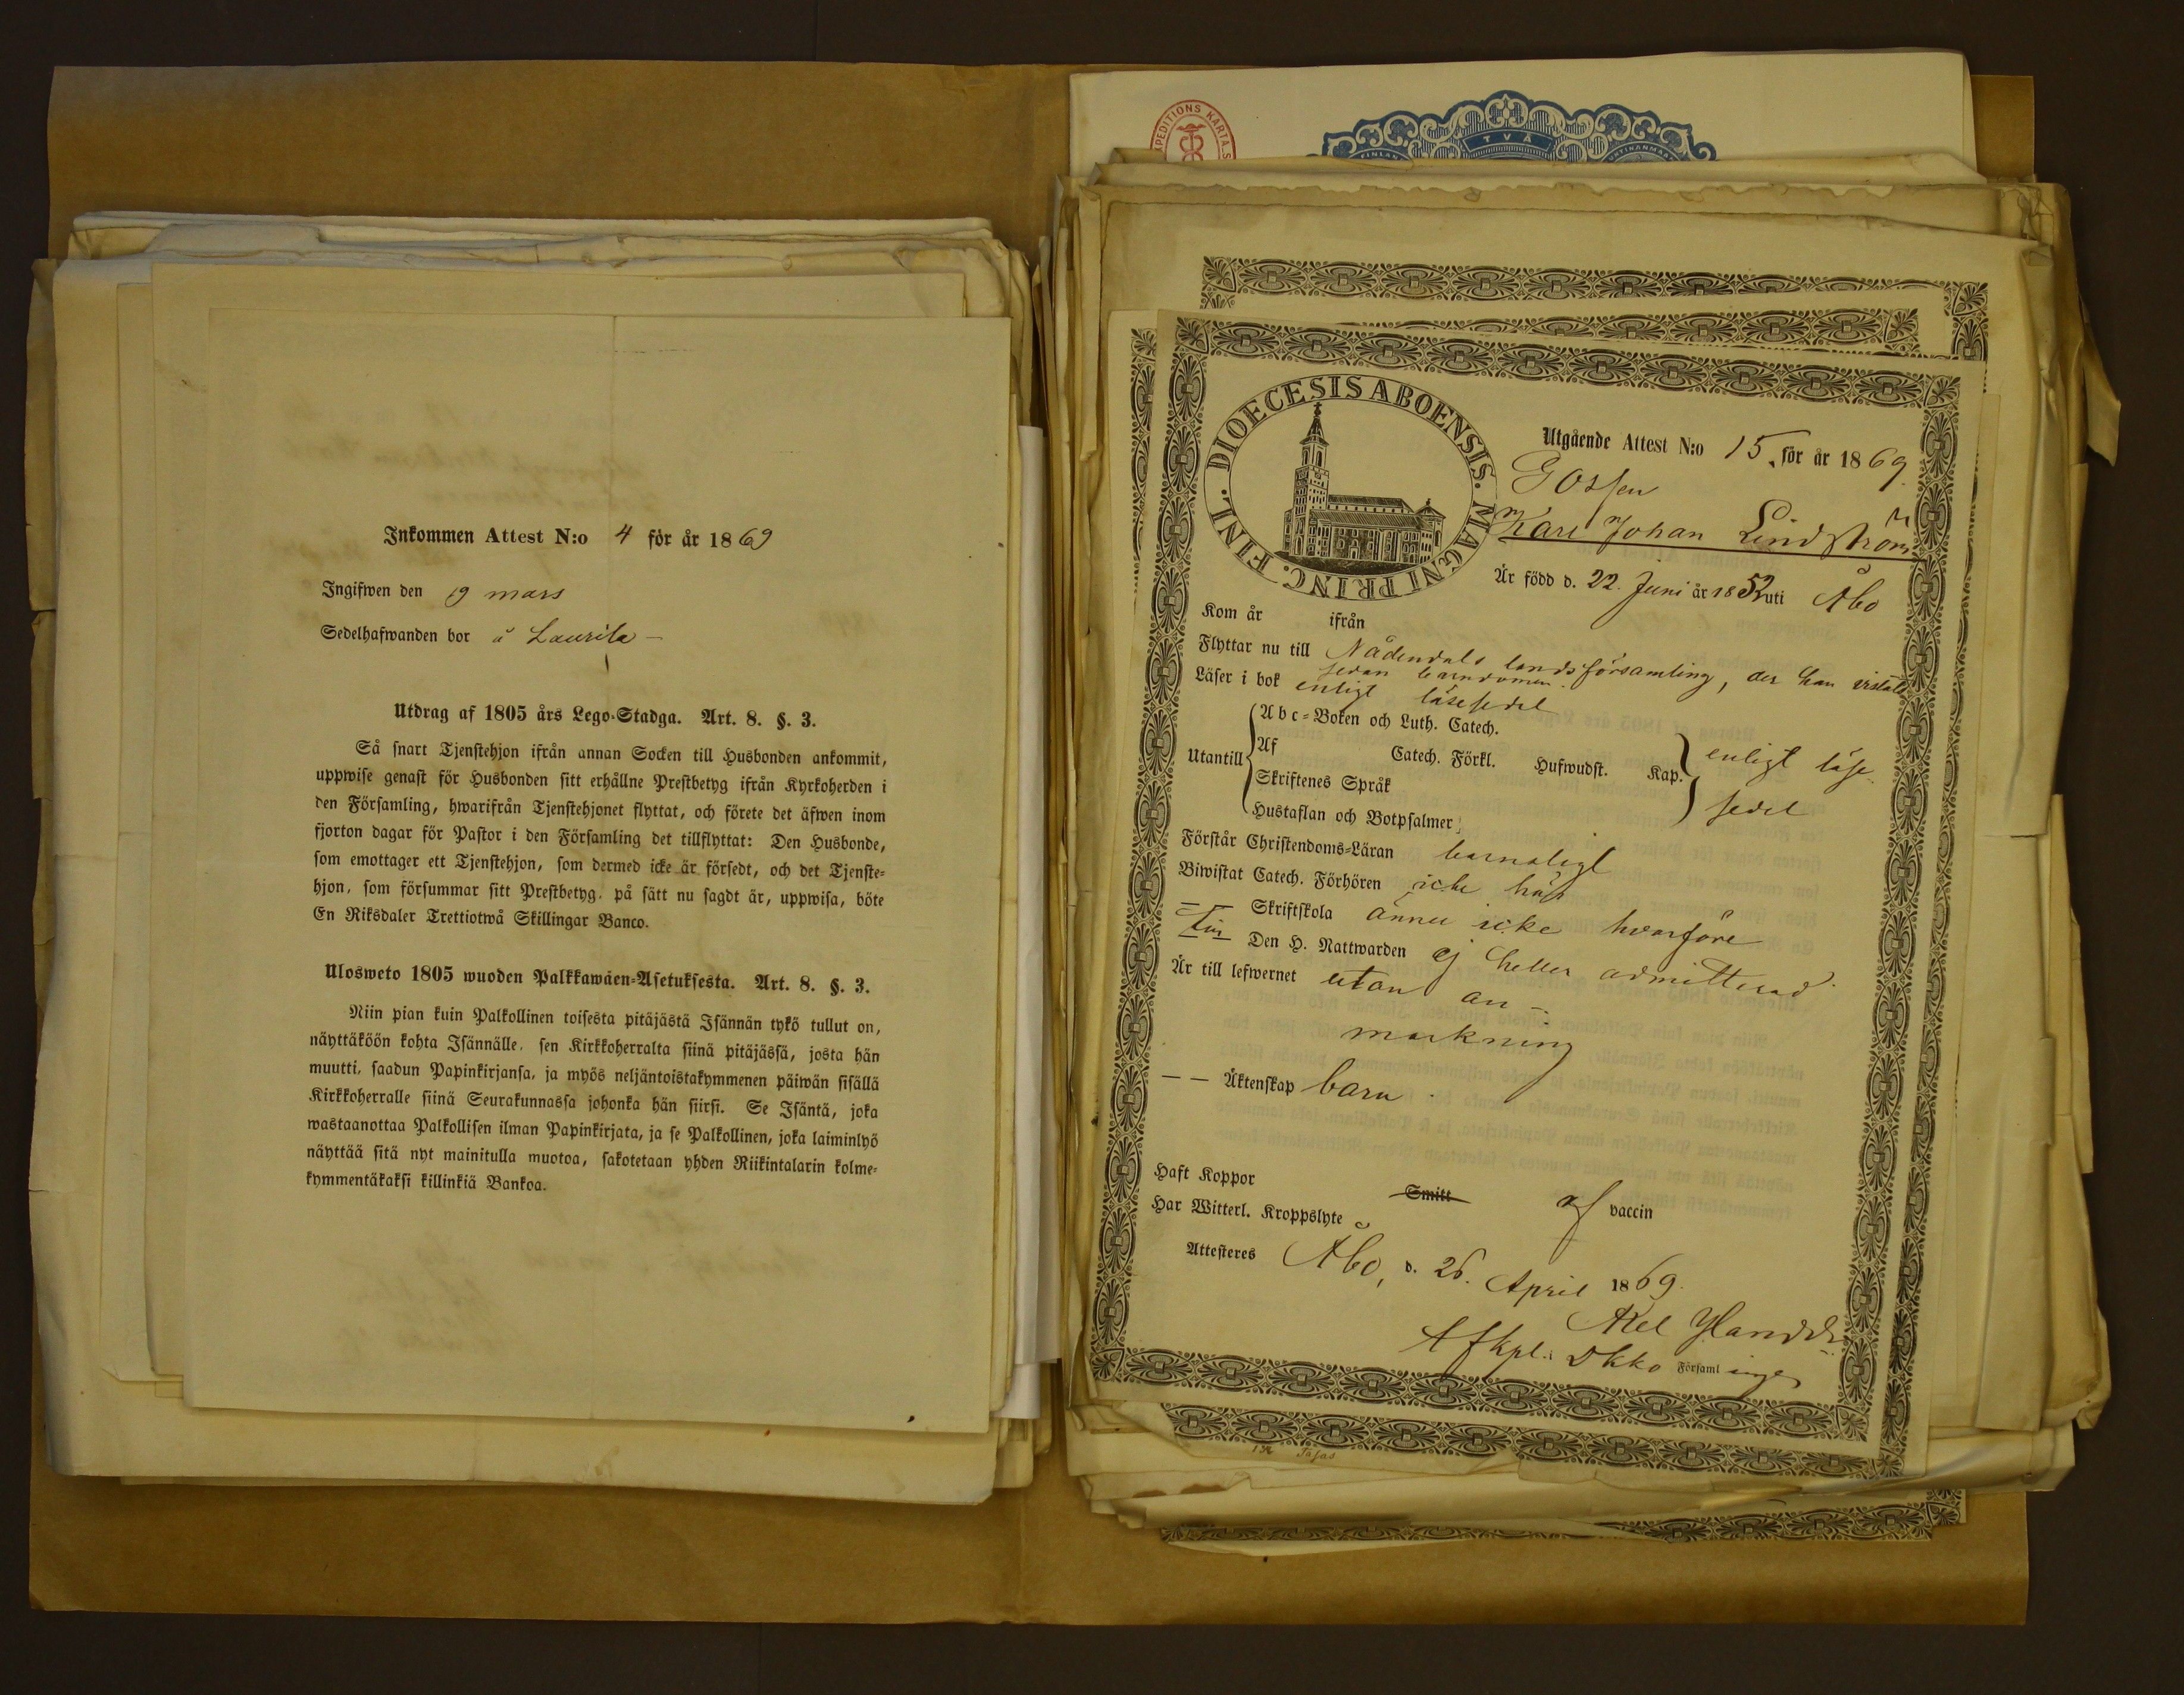 Inkommen Attest N:o 4 för år 1869
Ingifwen den 9 mars
Sedelhafwanden bor å Laurila
Utdrag af 1805 års Lego-Stadga. Art. 8. §. 3.
Så snart Tjenstehjon ifrån annan Socken till Husbonden ankommit,
uppwise genast för Husbonden sitt erhållne Prestbetyg ifrån Kyrkoherden i
den Församling, hwarifrån Tjenstehjonet flyttat, och förete det äfwen inom
fjorton dagar för Pastor i den Församling det tillflyttat: Den Husbonde,
som emottager ett Tjenstehjon, som dermed icke är försedt, och det Tjenste-
hjon, som försummar sitt Prestbetyg, på sätt nu sagdt är, uppwisa, böte
En Riksdaler Trettiotwå Skillingar Banco.
Ulosweto 1805 wuoden Palkkawäen-Asetuksesta. Art. 8. §. 3.
Niin pian kuin Palkollinen toisesta pitäjästä Isännän tykö tullut on,
näyttäköön kohta Isännälle, sen Kirkkoherralta siinä pitäjässä, josta hän
muutti, saadun Papinkirjansa, ja myös neljäntoistakymmenen päiwän sisällä
Kirkkoherralle siinä Seurakunnassa johonka hän siirsi. Se Isäntä, joka
wastaanottaa Palkollisen ilman Papinkirjata, ja se Palkollinen, joka laiminlyö
näyttää sitä nyt mainitulla muotoa, sakotetaan yhden Riikintalarin kolme-
kymmentäkaksi killinkiä Bankoa.
EXPEDITIONS KARTA.S
TVÅ
FINLAN
DIOECESIS ABOENSIS. MAGNI PRINC. FINL.
Utgående Attest N:o 15. för år 1869.
Gossen
Karl Johan Lindström
Är född d. 22. Juni år 1852 uti Åbo
Kom år ifrån
Flyttar nu till Nådendals landsförsamling, der han vistats
sedan barndomen.
Läser i bok enligt läsesedel
Utantill
Abc-Boken och Luth. Catech.
Af Catech. Förkl. Hufwudst. Kap.
Skriftenes Språk
Hustaflan och Botpsalmer
enligt läse-
sedel
Förstår Christendoms-Läran barnsligt
Biwistat Catech. Förhören icke här
— — Skriftskola ännu icke hvarföre
Till Den H. Nattwarden ej heller admitterad.
Är till lefwernet utan an-
märkning
— — Äktenskap barn.
Haft Koppor Smitt af vaccin
Har Witterl. Kroppslyte
Attesteres Åbo, d. 26. April 1869.
Axel
Församl